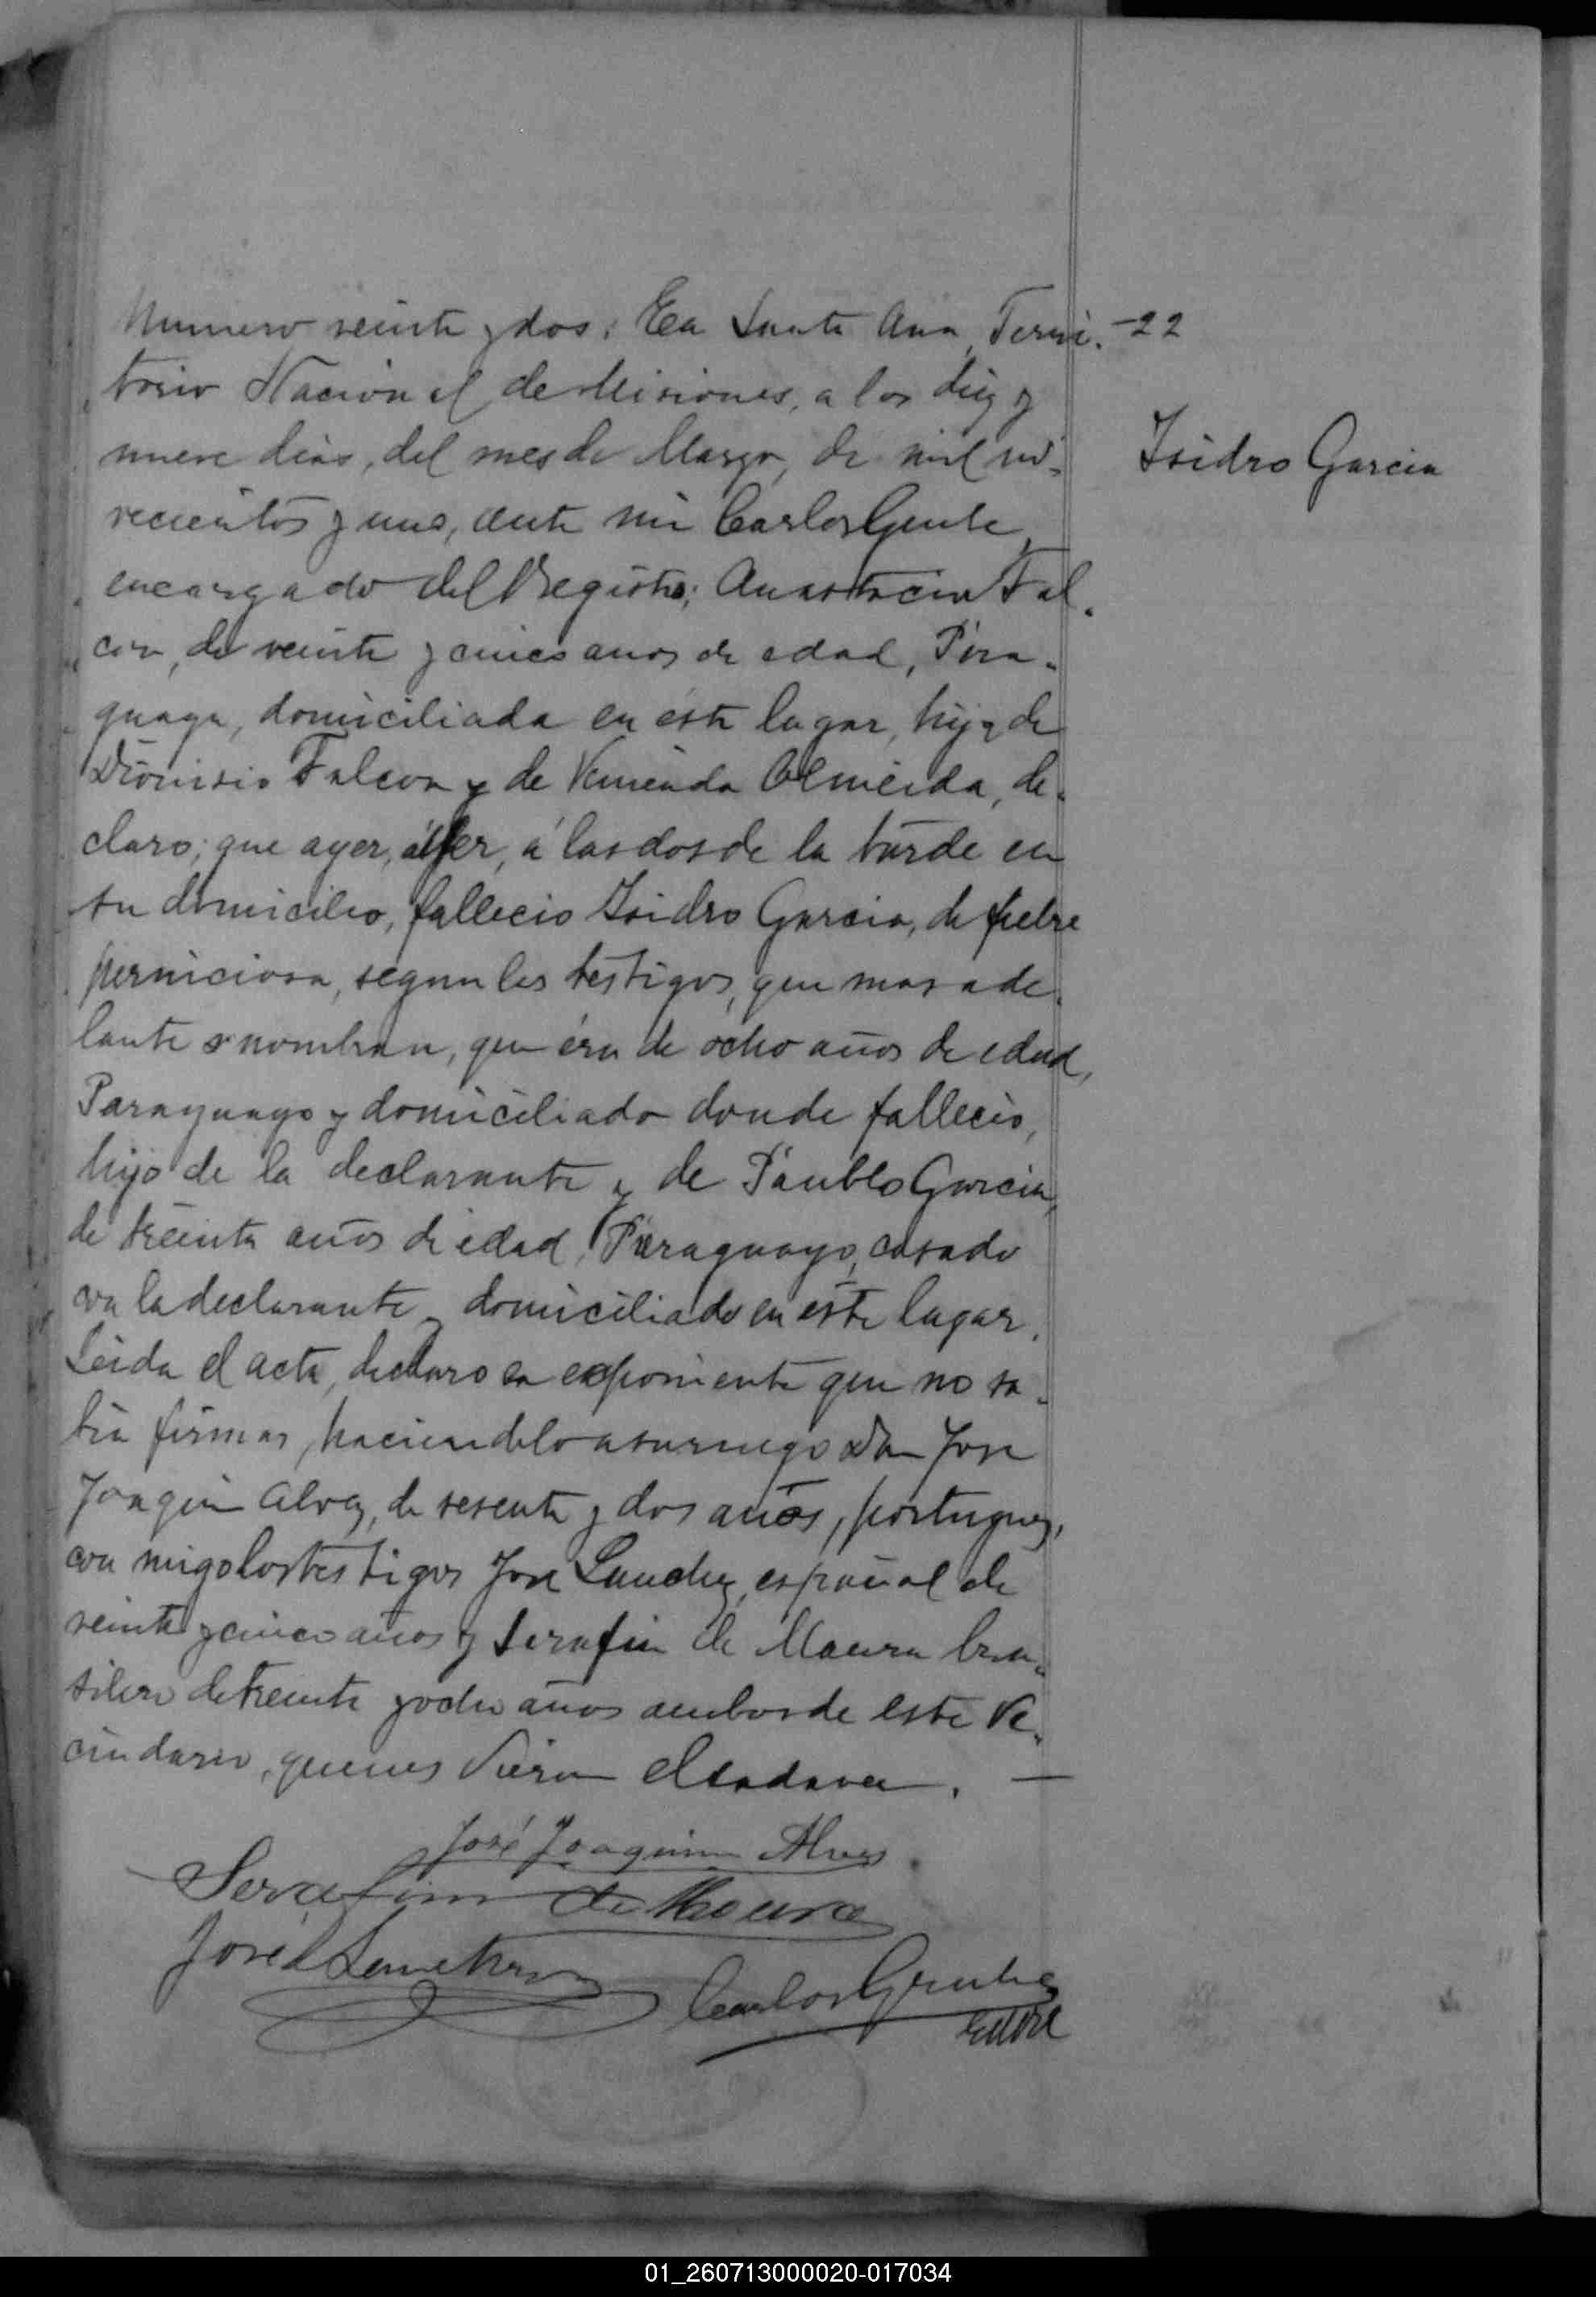 Numero veinte y dos: En Santa Ana, Terri-
torio Nacional de Misiones, a los diez y
nueve dias, del mes de Marzo, de mil no-
vecientos y uno, ante mi Carlos Gruhe,
encargado del Registro; Anastacia Fal-
con, de veinte y cinco años de edad, Para-
guaya, domiciliada en este lugar, hija de
Dionisio Falcon y de Almeida, de-
claro; que ayer, á las dos de la tarde en
su domicilio, fallecio Isidro Garcia, de fiebre
perniciosa, segun los testigos, que mas ade-
lante se nombran, que éra de ocho años de edad,
Paraguayo y domiciliado donde fallecio,
hijo de la declarante y de Paublo Garcia,
de treinta años de edad, Paraguayo, casado
con la declarante y domiciliado en este lugar.
Leida el acta, declaro la exponiente que no sa-
bia firmar, haciendolo a su ruego Don Jose
Joaquin Alvez, de sesenta y dos años, portuguez,
con migo los testigos Jose Sanchez, español de
veinte y cinco años y Serafin de Maura bra-
silero de treinta y ocho años ambos de este Ve-
cindario, quienes vieron el cadaver. —
José Joaquim Alves
Serafim de Moura
José Sanchez
Carlos Gruhe
-22
Isidro Garcia
01_260713000020-017034